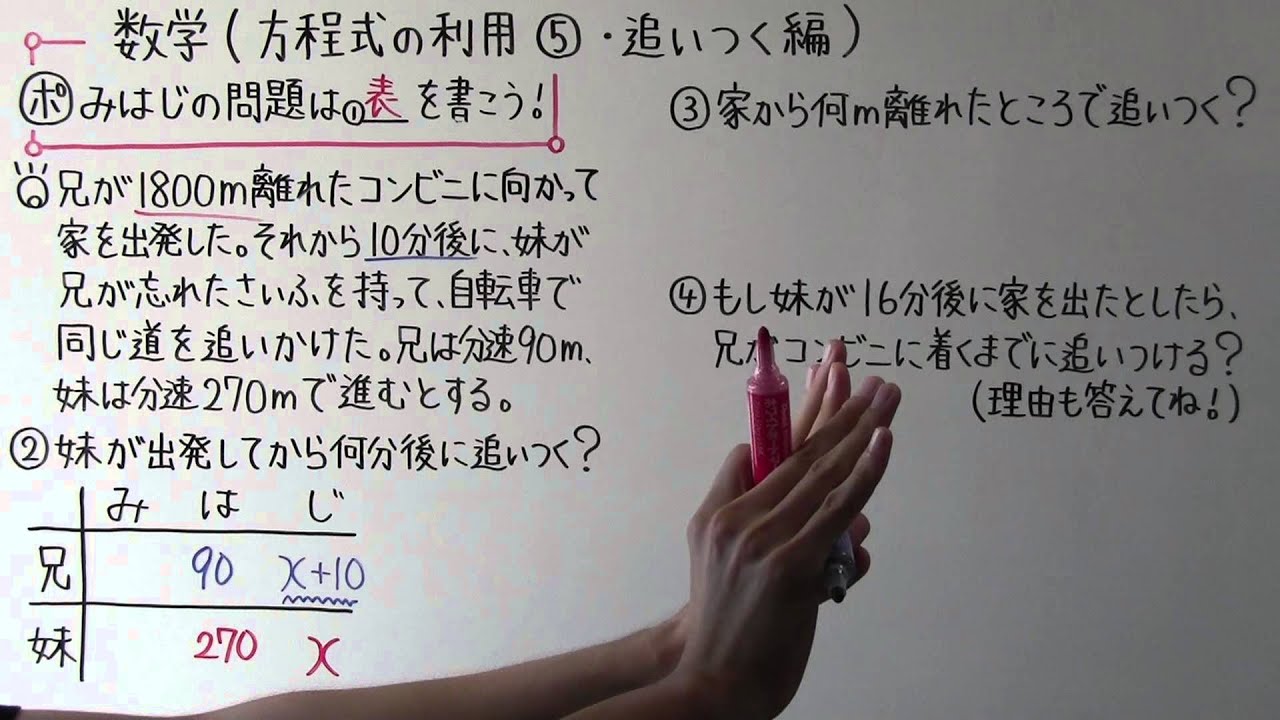 数学(方程式の利用⑤・追いつく編)
ポ みはじの問題は①表を書こう!
兄が1800m離れたコンビニに向かって
家を出発した。それから10分後に、妹が
兄が忘れたさいふを持って、自転車で
同じ道を追いかけた。兄は分速90m、
妹は分速270mで進むとする。
②妹が出発してから何分後に追いつく?
み は じ
兄 90 x+10
妹 270 x
③家から何m離れたところで追いつく?
④もし妹が16分後に家を出たとしたら、
兄がコンビニに着くまでに追いつける?
(理由も答えてね!)